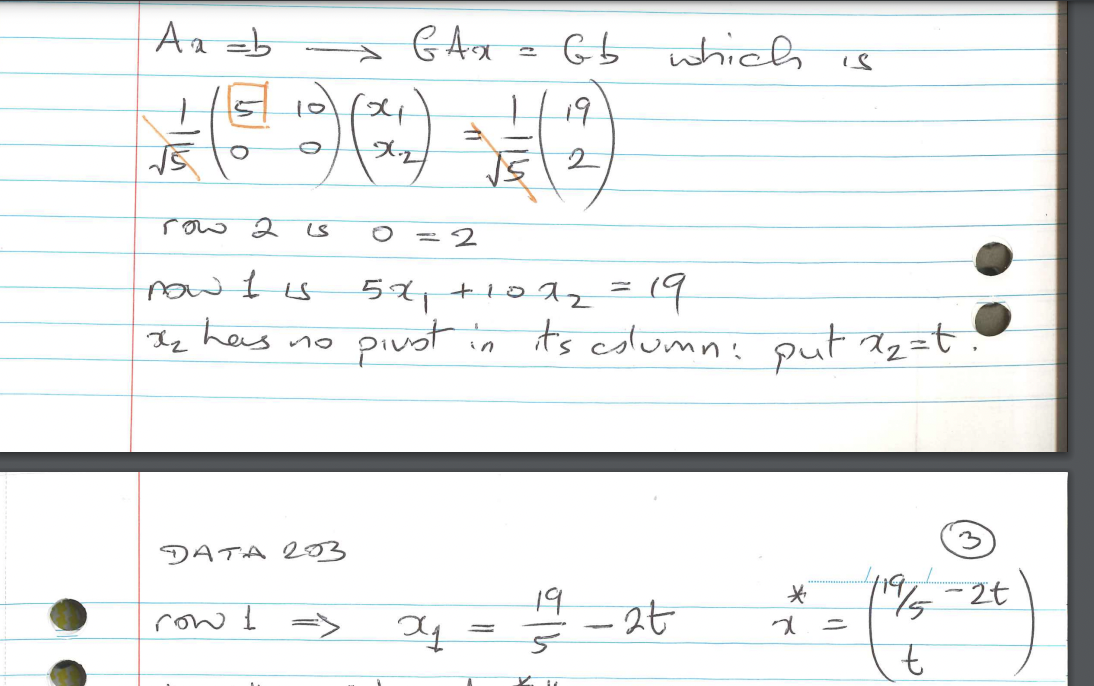 Ax = b → GAx = Gb which is
1/√5 (5 10; 0 0) (x₁; x₂) = 1/√5 (19; 2)
row 2 is 0 = 2
row 1 is 5x₁ + 10x₂ = 19
x₂ has no pivot in its column: put x₂ = t.
DATA 203
3
row 1 ⇒ x₁ = 19/5 - 2t x* = (19/5 - 2t; t)